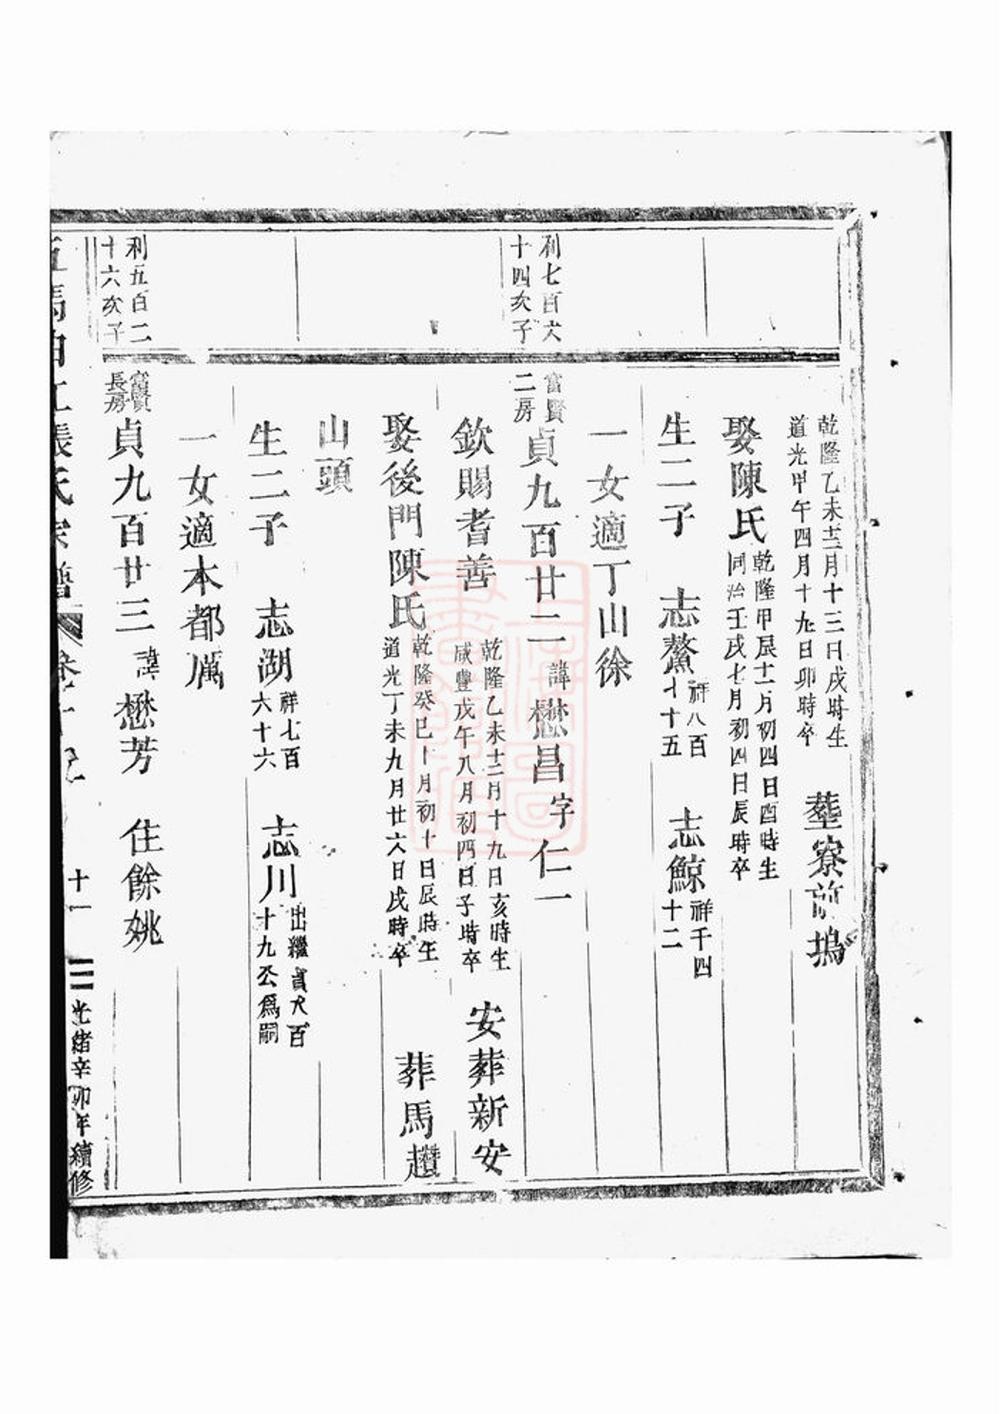 乾隆乙未十二月十三日戌時生
道光甲午四月十九日卯時卒
塟寮前塢
娶陳氏
乾隆甲辰十二月初四日酉時生
同治壬戌七月初四日辰時卒
生二子　志鰲
祥八百
十五
志鯨
祥千四
十二
一女適丁山徐
利七百六
十四次子
富賢
二房
貞九百廿二諱懋昌字仁一
欽賜耆善
乾隆乙未十二月十九日亥時生
咸豐戊午八月初四日子時卒
安葬新安
娶後門陳氏
乾隆癸巳十月初十日辰時生
道光丁未九月廿六日戌時卒
葬馬趲
山頭
生二子　志湖
祥七百
六十六
志川
出繼貞九百
十九公為嗣
一女適本都厲
利五百二
十六次子
富賢
長房
貞九百廿三諱懋芳　住餘姚
張氏宗譜
十一
光緒辛卯年續修